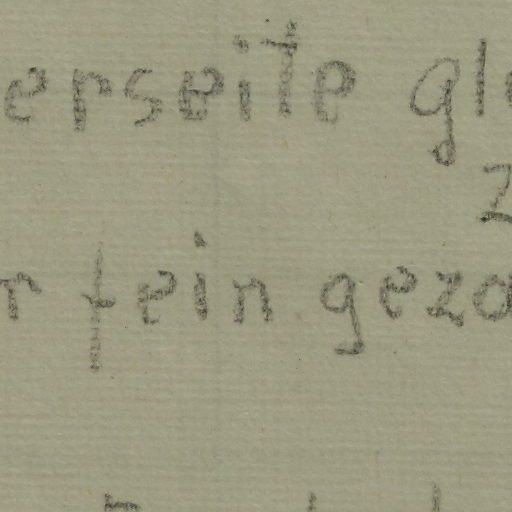 erseite gl
z
r fein geza